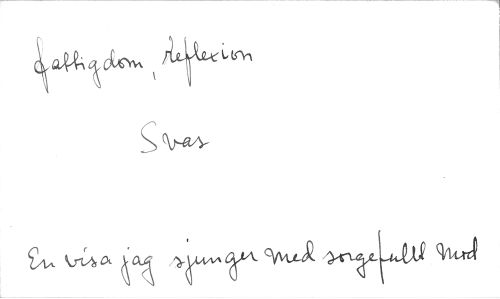 fattigdom, reflexion
Svar
En visa jag sjunger med sorgefullt mod